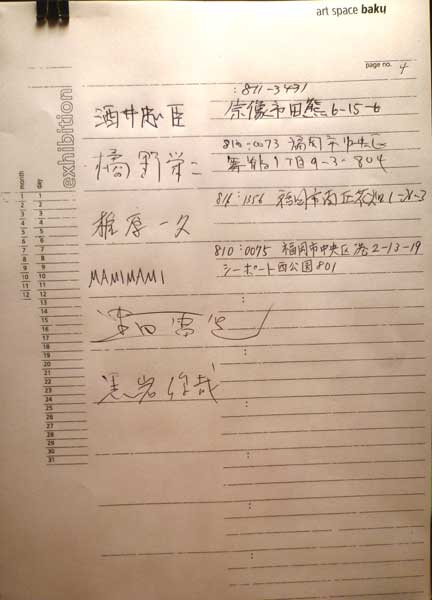 art space baku
page no. 4
exhibition
month
day
1 1
2 2
3 3
4 4
5 5
6 6
7 7
8 8
9 9
10 10
11 11
12 12
13
14
15
16
17
18
19
20
21
22
23
24
25
26
27
28
29
30
31
:811-3431
酒井忠臣 宗像市田熊6-15-6
810:0073 福岡市中央区
橋野栄二 舞鶴1丁目9-3-804
椎原一久
福岡市南区
MAMIMAMI
810:0075 福岡市中央区港2-13-19
シーポート西公園801
黒岩
哉